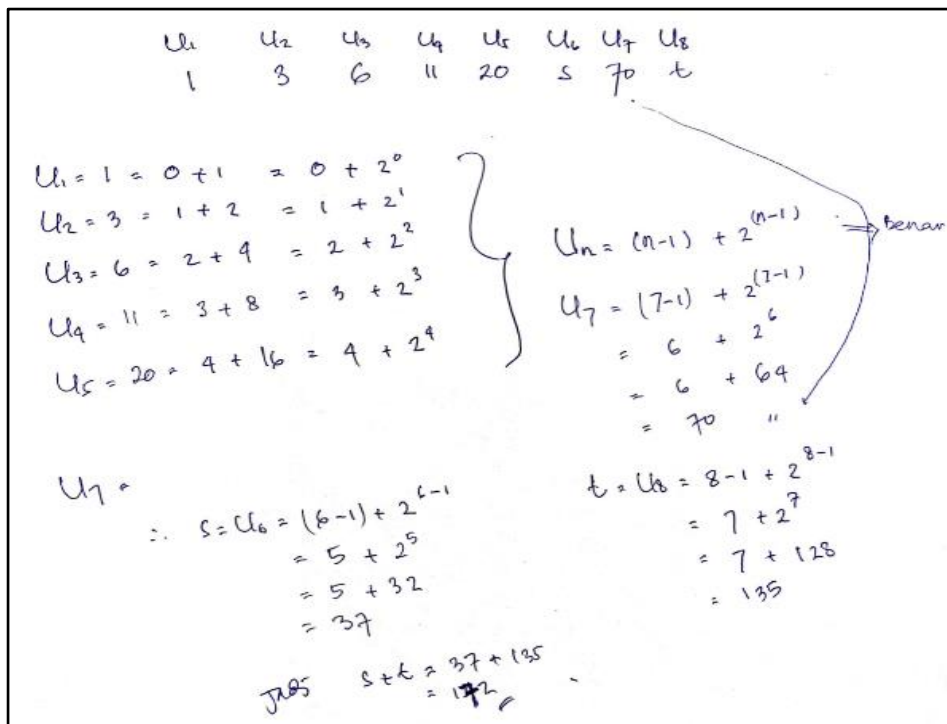 U₁ U₂ U₃ U₄ U₅ U₆ U₇ U₈
1 3 6 11 20 s 70 t
U₁ = 1 = 0 + 1 = 0 + 2⁰
U₂ = 3 = 1 + 2 = 1 + 2¹
U₃ = 6 = 2 + 4 = 2 + 2²
U₄ = 11 = 3 + 8 = 3 + 2³
U₅ = 20 = 4 + 16 = 4 + 2⁴
Uₙ = (n-1) + 2⁽ⁿ⁻¹⁾ ⇒ Benar
U₇ = (7-1) + 2⁽⁷⁻¹⁾
= 6 + 2⁶
= 6 + 64
= 70 "
U₇ =
∴ s = U₆ = (6-1) + 2⁶⁻¹
= 5 + 2⁵
= 5 + 32
= 37
t = U₈ = 8-1 + 2⁸⁻¹
= 7 + 2⁷
= 7 + 128
= 135
s + t = 37 + 135
= 172